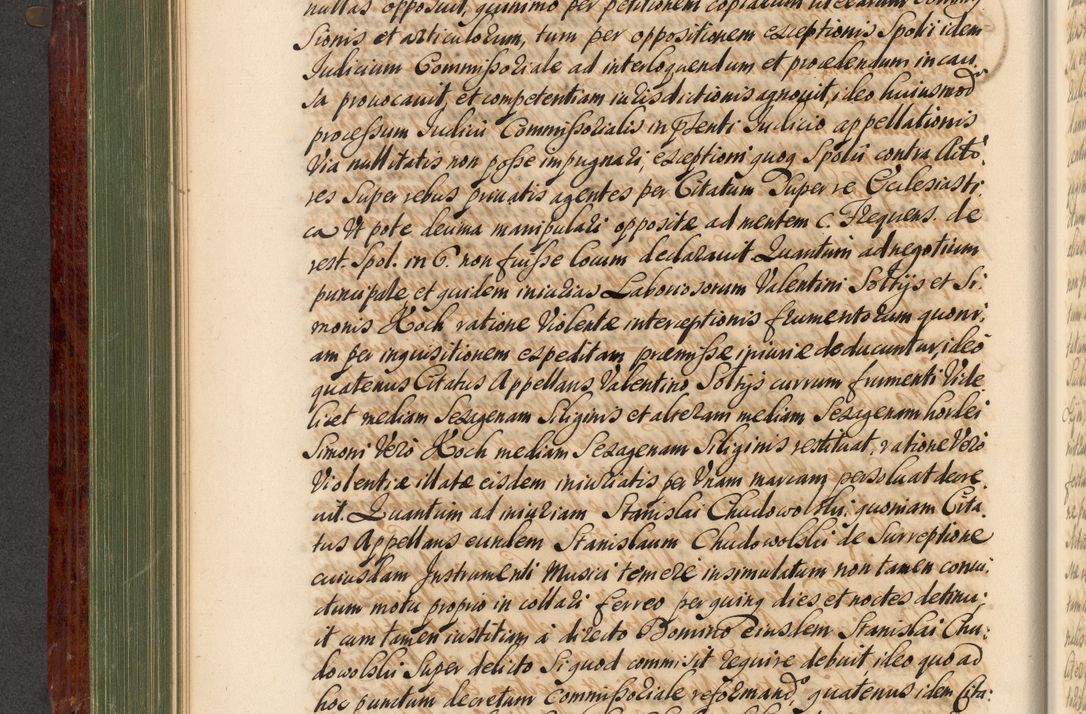 nullas opposuit, quinimo per petitionem copiarum literarum Commis
sionis et articulorum, tum per oppositionem exceptionis Spolii idem
Judicium Commissoriale ad interloquendum et procedendum in cau
sa prouocauit, et competentiam iurisdictionis agnouit, ideo huiusmodi
processum Judicii Commissorialis in pṡenti Judicio appellationis
Via nullitatis non posse impugnari, exceptioni quoq Spolii contra Acto
res Super rebus priuatis agentes per Citatum Super re Ecclesiasti
ca Ut pote decima manipulari oppositæ ad mentem c. Frequens. de
rest. Spol. in 6. non fuisse locum declarauit Quantum ad negotium
principale et quidem iniurias Laboriosorum Valentini Soltÿs et Si,
monis Koch ratione Violentæ interceptionis frumentorum quoni,
am per inquisitionem expeditam præmissæ iniuriæ deducuntur, ideo
quatenus Citatus Appellans Valentino Soltÿs currum frumenti Vide,
licet mediam Sexagenam Siliginis et alteram mediam Sexagenam hordei
Simoni Vero Koch mediam Sexagenam Siliginis restituat, ratione Vero
Violentiæ illatæ eisdem iniuriatis per Vnam marcam persoluat decre,
uit. Quantum ad iniuriam Stanislai Chudowolski, quoniam Cita,
tus Appellans eundem Stanislaum Chudowolski de Surreptione
cuiusdam Instrumenti Musici temere insimulatum non tamen conui,
ctum motu proprio in collari ferreo per quinq dies et noctes detinu,
it cum tamen iustitiam a directo Domino eiusdem Stanislai Chu,
dowolski Super delicto Si quod commisit require debuit ideo quo ad
hoc punctum decretum Commissoriale reformando, quatenus idem Cita,